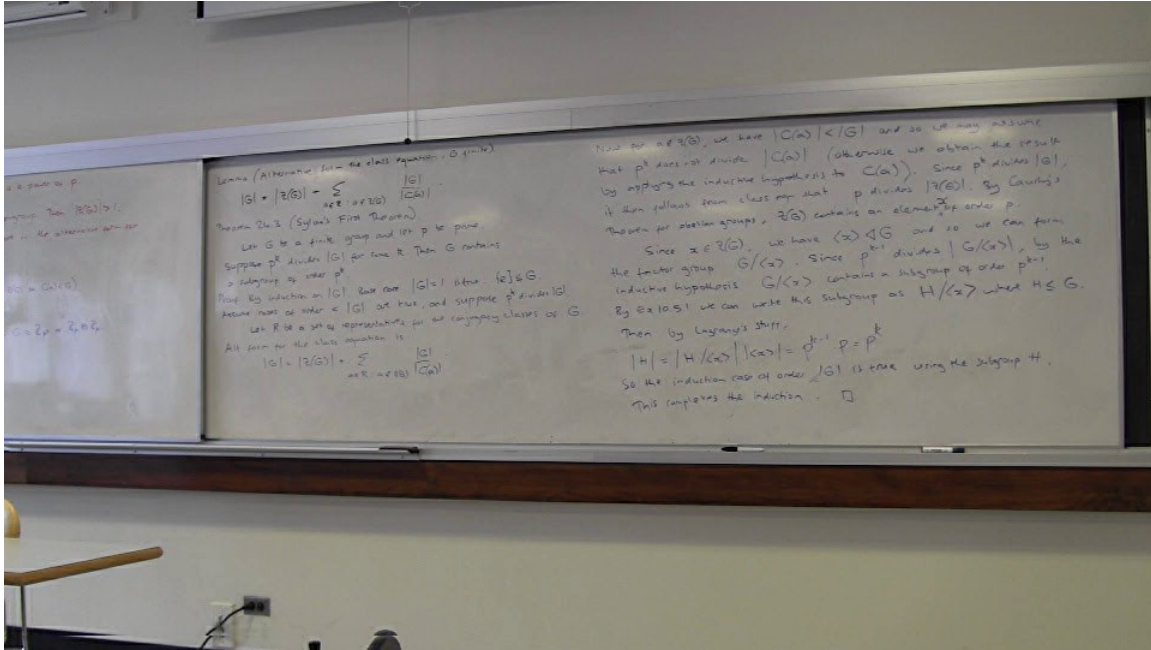 is a power of p.
subgroup. Then |Z(G)|>1.
the alternative form for
G ≅ Zp² or Zp⊕Zp
Lemma (Alternative form the class equation, G finite)
|G| = |Z(G)| + ∑ |G|/|C(a)|
a∈R : a∉Z(G)
Theorem 24.3 (Sylow's First Theorem)
Let G be a finite group and let p be prime.
Suppose p^k divides |G| for some k. Then G contains
a subgroup of order p^k.
Proof By induction on |G|. Base case |G|=1 is true. {e}≤G.
Assume cases of order < |G| are true, and suppose p^k divides |G|.
Let R be a set of representatives for the conjugacy classes of G.
Alt form for the class equation is
|G| = |Z(G)| + ∑ |G|/|C(a)|
a∈R : a∉Z(G)
Now for a∉Z(G), we have |C(a)|<|G| and so we may assume
that p^k does not divide |C(a)| (otherwise we obtain the result
by applying the inductive hypothesis to C(a)). Since p^k divides |G|,
it then follows from class eqn that p divides |Z(G)|. By Cauchy's
Theorem for abelian groups, Z(G) contains an element x of order p.
Since x∈Z(G), we have ⟨x⟩ ◁ G and so we can form
the factor group G/⟨x⟩. Since p^{k-1} divides |G/⟨x⟩|, by the
inductive hypothesis G/⟨x⟩ contains a subgroup of order p^{k-1}.
By Ex 10.51 we can write this subgroup as H/⟨x⟩ where H≤G.
Then by Lagrange's stuff,
|H| = |H/⟨x⟩| |⟨x⟩| = p^{k-1} p = p^k
So the induction case of order |G| is true using the subgroup H.
This completes the induction. □